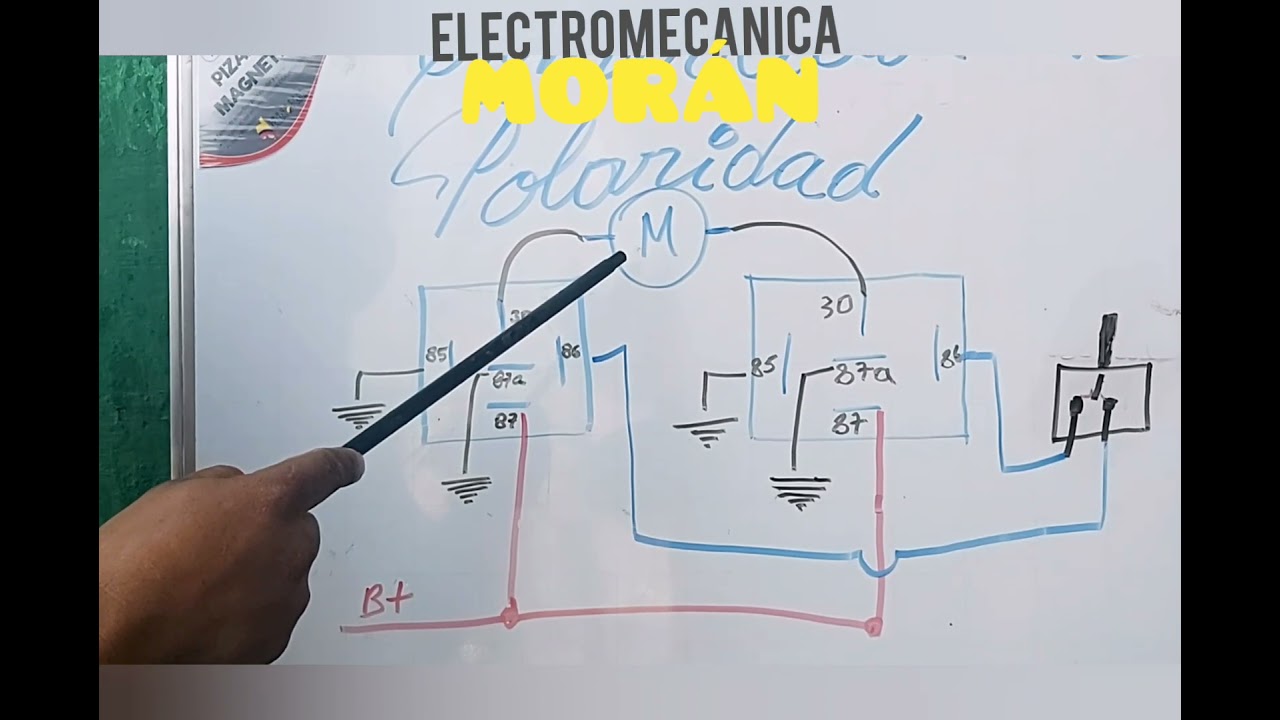 ELECTROMECANICA
MORÁN
PIZA
MAGNET
Polaridad
M
30
30
85
86
85
86
87a
87a
87
87
B+